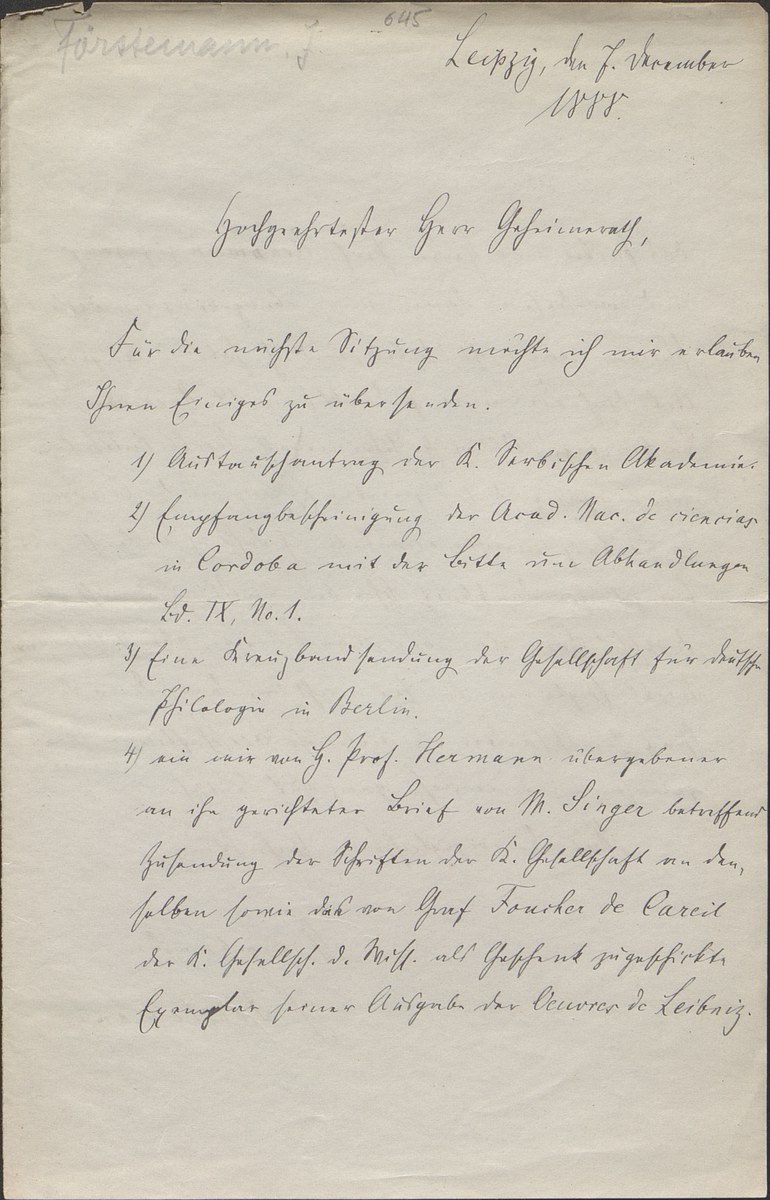 645
Förstemann, J
Leipzig, den 7. December
1888.
Hochgeehrtester Herr Geheimerath,
Für die nächste Sitzung möchte ich mir erlauben
Ihnen Einiges zu übersenden.
1) Austauschantrag der K. Serbischen Akademie.
2) Empfangbescheinigung der Acad. Nac. de ciencias
in Cordoba mit der Bitte um Abhandlungen
Bd. IX, No. 1.
3) Eine Kreuzbandsendung der Gesellschaft für deutsche
Philologie in Berlin.
4) ein mir von H. Prof. Hermann übergebener
an ihn gerichteter Brief von M. Singer betreffend
Zusendung der Schriften der K. Gesellschaft an den-
selben sowie das von Graf Foucher de Careil
der K. Gesellsch. d. Wiss. als Geschenk zugeschickte
Exemplar seiner Ausgabe der Oeuvres de Leibniz.